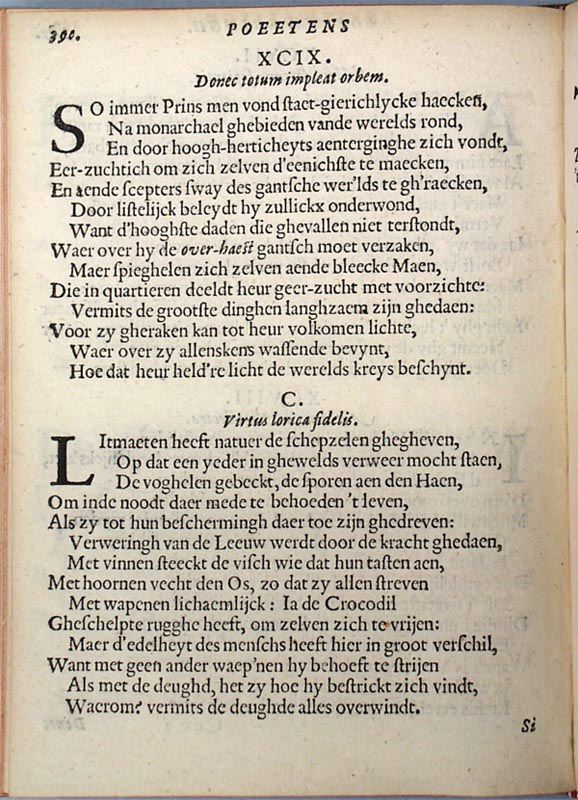 390. POEETENS
XCIX.
Donec totum impleat orbem.
SO immer Prins men vond staet-gierichlycke haecken,
Na monarchael ghebieden vande werelds rond,
En door hoogh-herticheyts aenterginghe zich vondt,
Eer-zuchtich om zich zelven d'eenichste te maecken,
En aende scepters sway des gantsche wer'lds te gh'raecken,
Door listelijck beleydt hy zullickx onderwond,
Want d'hooghste daden die ghevallen niet terstondt,
Waer over hy de over-haest gantsch moet verzaken,
Maer spieghelen zich zelven aende bleecke Maen,
Die in quartieren deeldt heur geer-zucht met voorzichte:
Vermits de grootste dinghen langhzaem zijn ghedaen:
Voor zy gheraken kan tot heur volkomen lichte,
Waer over zy allenskens wassende bevynt,
Hoe dat heur held're licht de werelds kreys beschynt.
C.
Virtus lorica fidelis.
LItmaeten heeft natuer de schepzelen ghegheven,
Op dat een yeder in ghewelds verweer mocht staen,
De voghelen gebeckt, de sporen aen den Haen,
Om inde noodt daer mede te behoeden 't leven,
Als zy tot hun beschermingh daer toe zijn ghedreven:
Verweringh van de Leeuw werdt door de kracht ghedaen,
Met vinnen steeckt de visch wie dat hun tasten aen,
Met hoornen vecht den Os, zo dat zy allen streven
Met wapenen lichaemlijck: Ia de Crocodil
Gheschelpte rugghe heeft, om zelven zich te vrijen:
Maer d'edelheyt des menschs heeft hier in groot verschil,
Want met geen ander waep'nen hy behoeft te strijen
Als met de deughd, het zy hoe hy bestrickt zich vindt,
Waerom? vermits de deughde alles overwindt.
Si